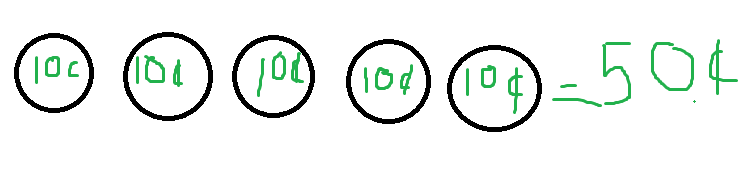 10c 10¢ 10¢ 10¢ 10¢ = 50¢